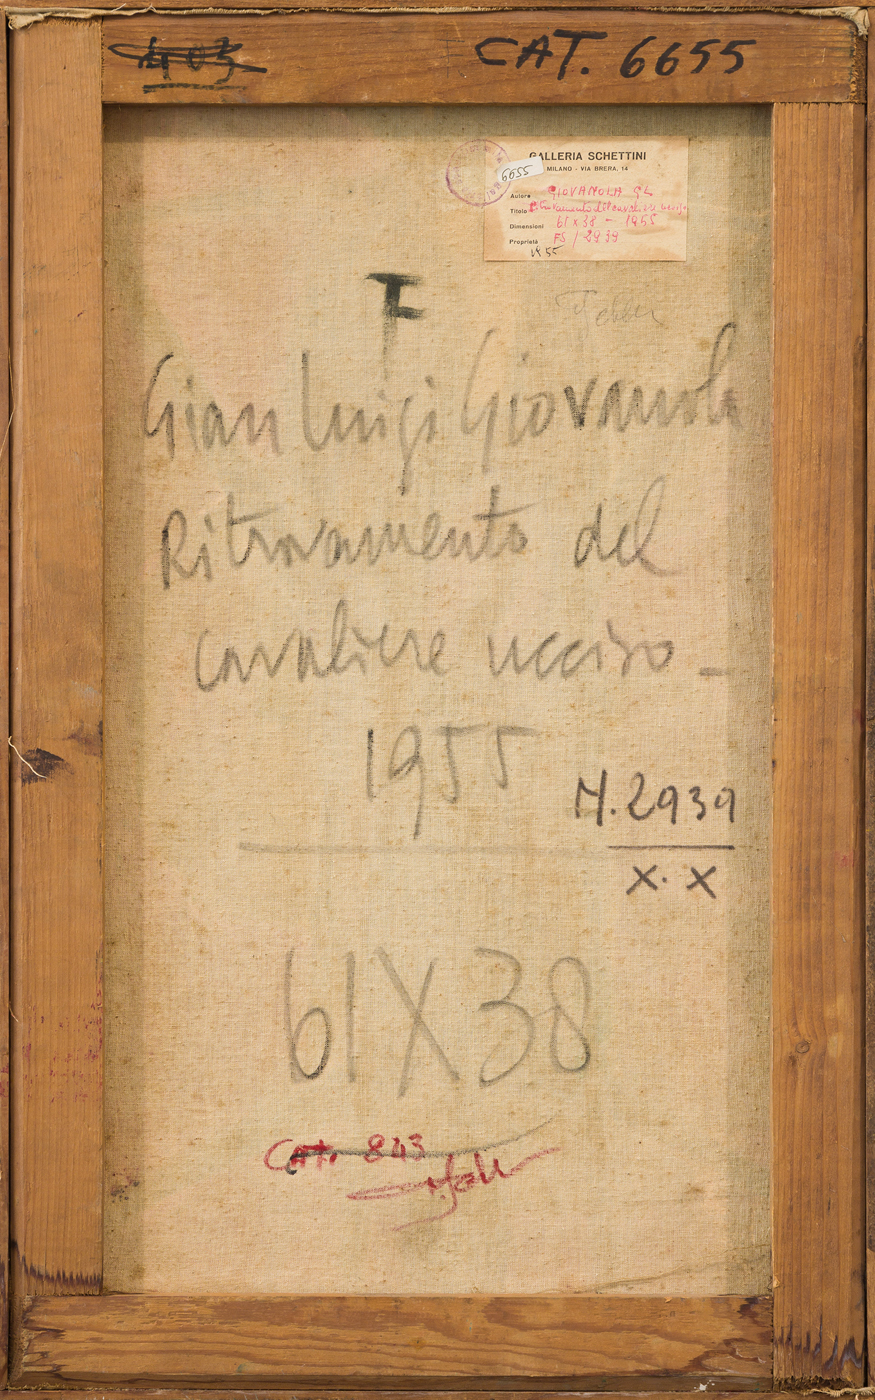 403
CAT. 6655
GALLERIA SCHETTINI
MILANO - VIA BRERA, 14
6655
Autore GIOVANOLA GL
Titolo Ritrovamento del cavaliere ucciso
Dimensioni 61x38 - 1955
Proprietà FS / 2939
1955
F
Gian Luigi Giovanola
Ritrovamento del
cavaliere ucciso -
1955
N. 2939
X. X
61X38
CAT. 843